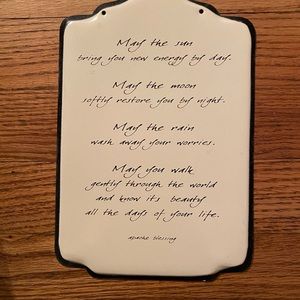 May the sun
bring you new energy by day.
May the moon
softly restore you by night.
May the rain
wash away your worries.
May you walk
gently through the world
and know it's beauty
all the days of your life.
apache blessing